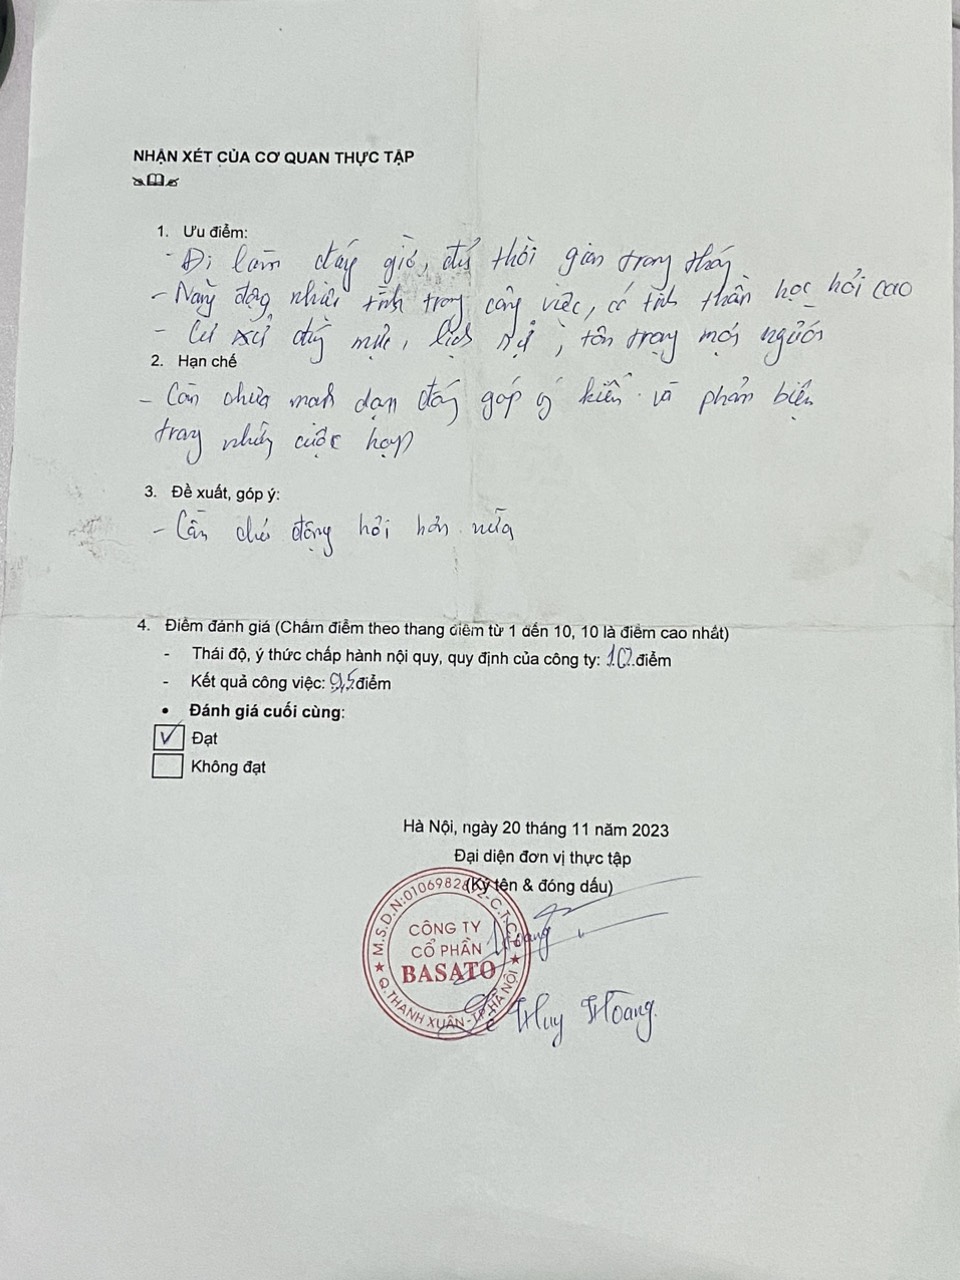 NHẬN XÉT CỦA CƠ QUAN THỰC TẬP
1. Ưu điểm:
- Đi làm đúng giờ, đủ thời gian trong tháng
- Năng động nhiệt tình trong công việc, có tinh thần học hỏi cao
- Cư xử đúng mực, lịch sự, tôn trọng mọi người
2. Hạn chế
- Còn chưa mạnh dạn đóng góp ý kiến và phản biện
trong những cuộc họp
3. Đề xuất, góp ý:
- Cần chủ động hỏi hơn nữa
4. Điểm đánh giá (Chấm điểm theo thang điểm từ 1 đến 10, 10 là điểm cao nhất)
- Thái độ, ý thức chấp hành nội quy, quy định của công ty: 10 điểm
- Kết quả công việc: 9,5 điểm
• Đánh giá cuối cùng:
Đạt
Không đạt
Hà Nội, ngày 20 tháng 11 năm 2023
Đại diện đơn vị thực tập
(Ký tên & đóng dấu)
CÔNG TY
CỔ PHẦN
BASATO
Q.THANH XUÂN-TP.HÀ NỘI
Hoàng
Lê Huy Hoàng